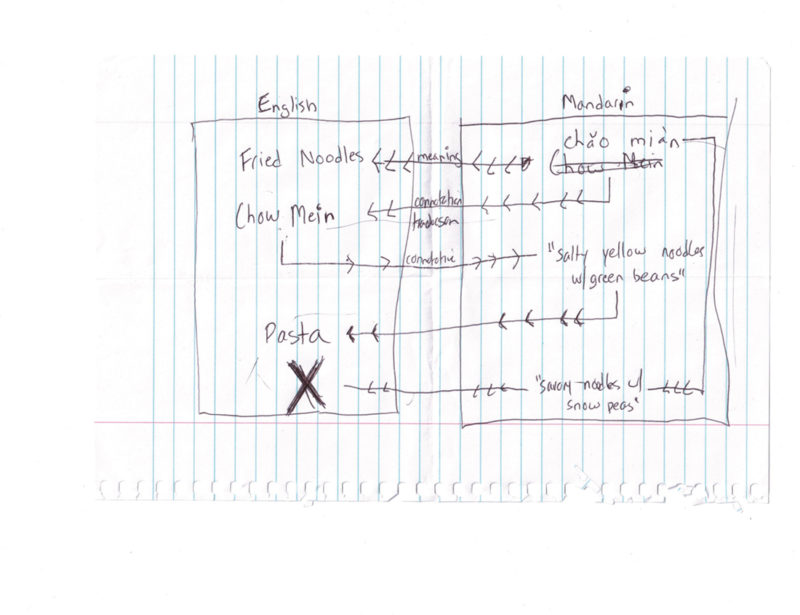 English
Mandarin
chǎo miàn
Fried Noodles
meaning
Chow Mein
Chow Mein
connotation
connotative
"salty yellow noodles
w/ green beans"
Pasta
X
"savory noodles w/
snow peas"